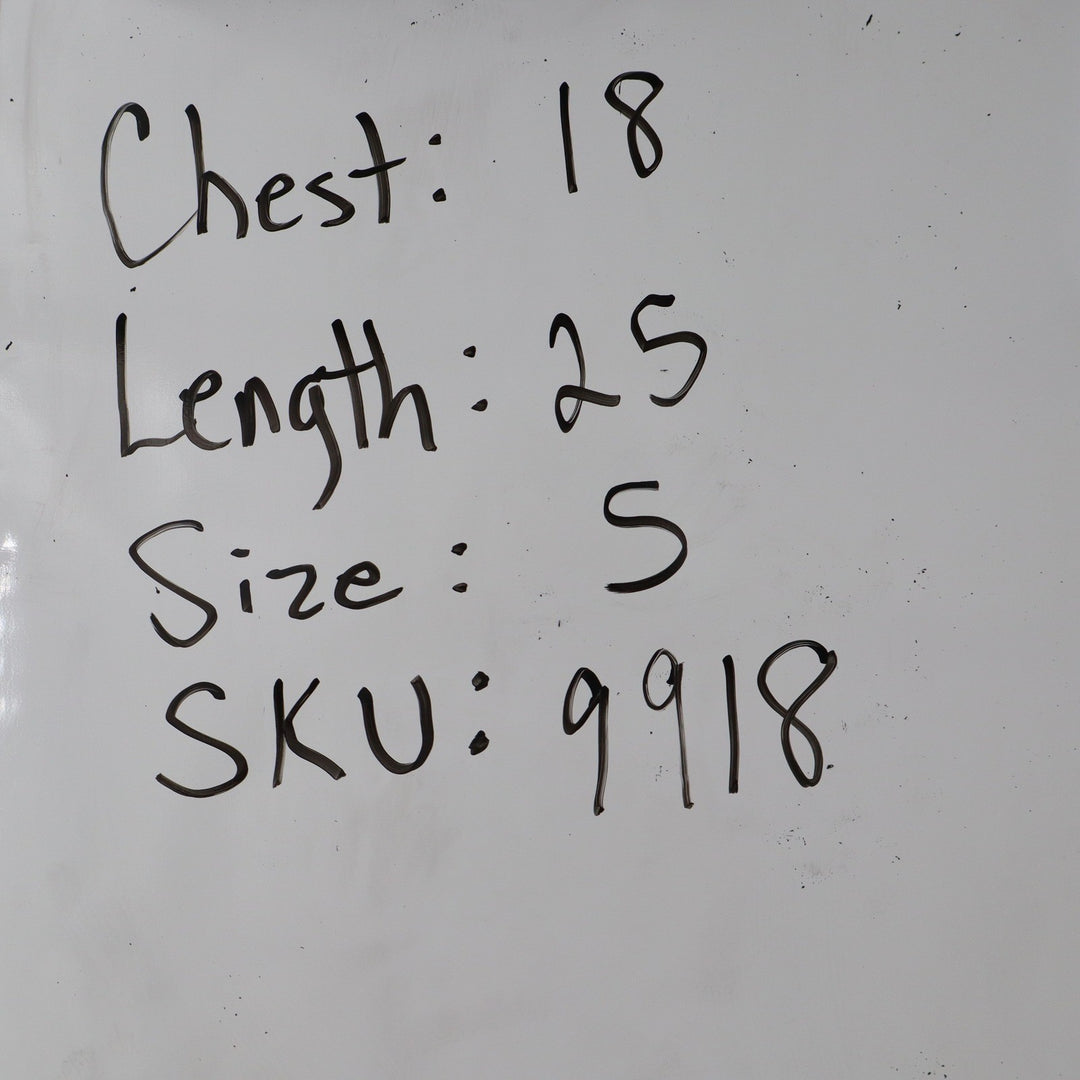 Chest: 18
Length: 25
Size: S
SKU: 9918